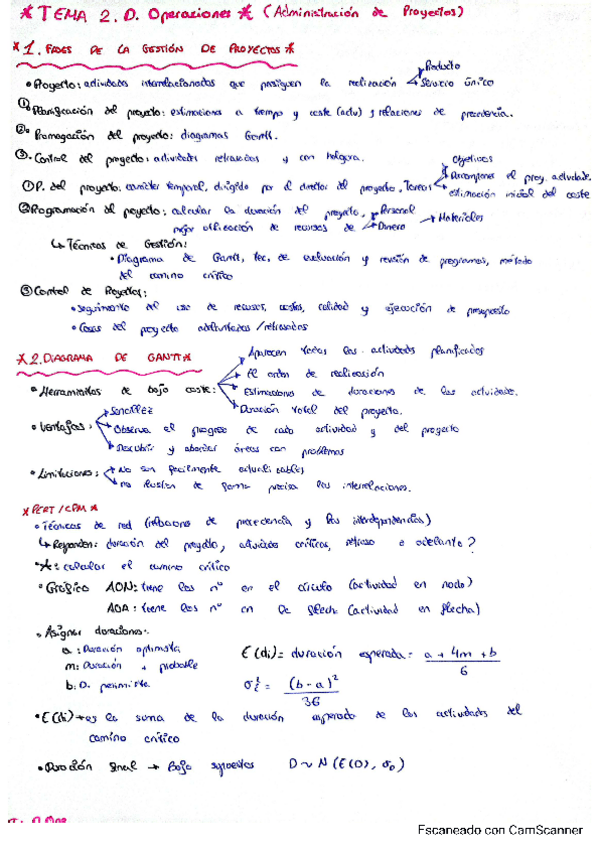 *TEMA 2. D. Operaciones * (Administración de Proyectos)
* 1. FASES DE LA GESTIÓN DE PROYECTOS *
• Proyecto: actividades interrelacionadas que persiguen la realización → Producto
→ Servicio único
① Planificación del proyecto: estimaciones a tiempo y coste (actv) y relaciones de precedencia.
②. Programación del proyecto: diagramas Gantt.
③. Control del proyecto: actividades retrasadas y con holgura.
① P. del proyecto: carácter temporal, dirigido por el director del proyecto, Tareas → Objetivos
→ Descomponer el proy. actividade.
→ estimación inicial del coste
② Programación del proyecto: calcular la duración del proyecto,
mejor utilización de recursos de → Personal
→ Dinero
→ Materiales
↳ Técnicas de Gestión:
• Diagrama de Gantt, tec. de evaluación y revisión de programas, método
del camino crítico
③ Control de Proyectos:
• Seguimiento del uso de recursos, costes, calidad y ejecución de presupuesto
• Cosas del proyecto adelantadas/retrasadas
* 2. DIAGRAMA DE GANTT *
• Herramientas de bajo coste: → Aparecen todas las actividades planificadas
→ El orden de realización
→ Estimaciones de duraciones de las actividade.
→ Duración total del proyecto.
• Ventajas: → Sencillez
→ Observa el progreso de cada actividad y del proyecto
→ Descubrir y abordar áreas con problemas
• Limitaciones: → No son fácilmente actualizables
→ no ilustran de forma precisa las interrelaciones.
* PERT/CPM *
• Técnicas de red (relaciones de precedencia y las interdependencias)
↳ Responden: duración del proyecto, actividades críticas, retraso o adelante?
• *A*: calcular el camino crítico
• Gráfico AON: tiene los nº en el círculo (actividad en nodo)
AOA: tiene los nº en la flecha (actividad en flecha)
• Asignar duraciones:
a: Duración optimista
m: Duración + probable
b: D. pesimista
E(di) = duración esperada = a + 4m + b / 6
σ²i = (b - a)² / 36
• E(di) → es la suma de la duración esperada de las actividades del
camino crítico
• Duración final → Bajo supuestos D ~ N (E(D), σD)
Escaneado con CamScanner